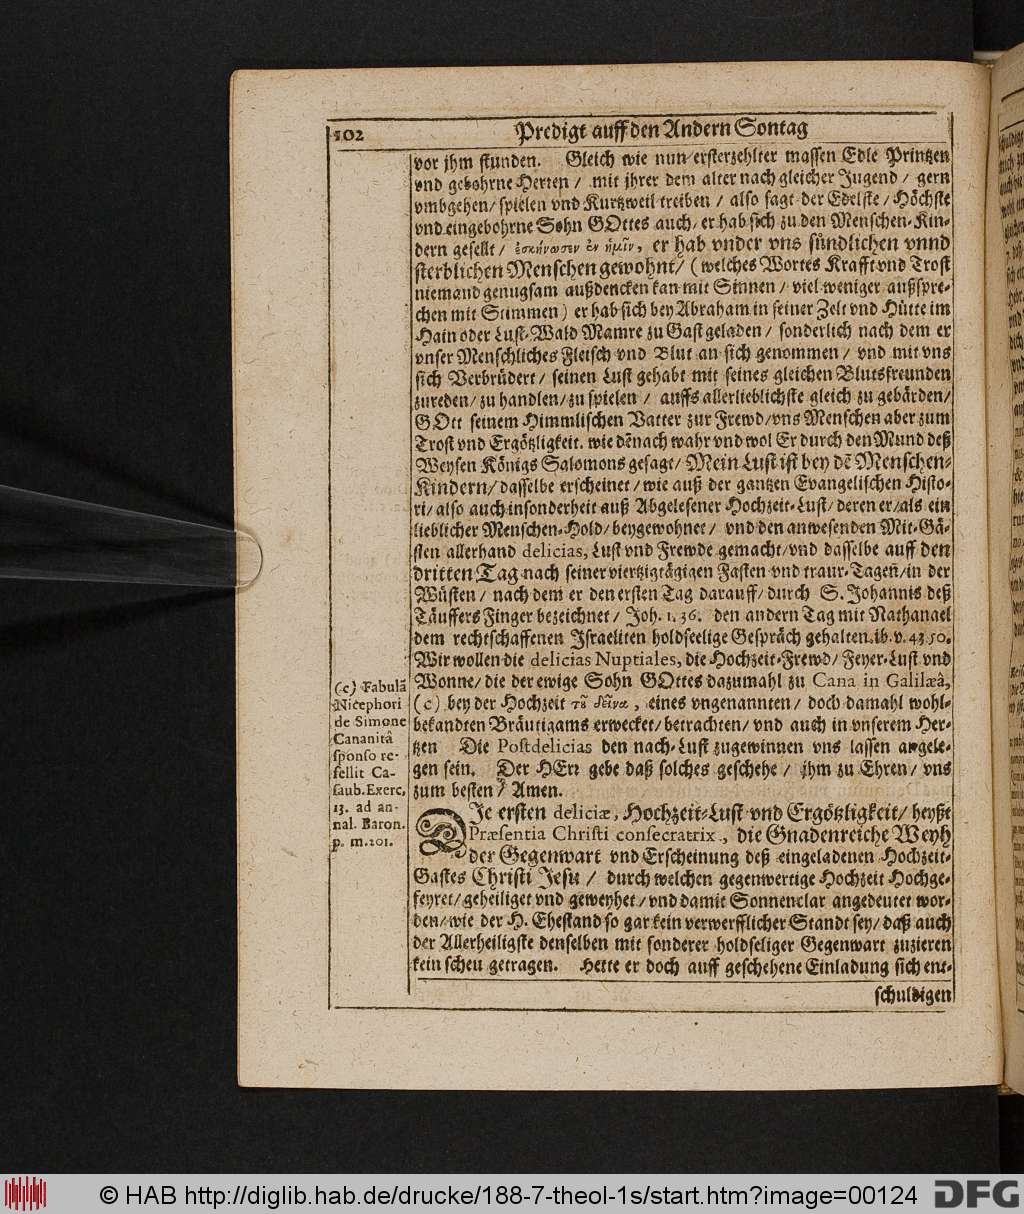 102
Predigt auff den Andern Sontag
vor jhm stunden. Gleich wie nun ersterzehlter massen Edle Printzen
vnd gebohrne Herren / mit jhrer dem alter nach gleicher Jugend / gern
vmbgehen / spielen vnd Kurtzweil treiben / also sagt der Edelste / Höchste
vnd eingebohrne Sohn GOttes auch / er hab sich zu den Menschen-Kin-
dern gesellt / ἐσκήνωσεν ἐν ἡμῖν, er hab vnder vns sündlichen vnnd
sterblichen Menschen gewohnt / (welches Wortes Krafft vnd Trost
niemand genugsam außdencken kan mit Sinnen / viel weniger außspre-
chen mit Stimmen) er hab sich bey Abraham in seiner Zelt vnd Hütte im
Hain oder Lust-Wald Mamre zu Gast geladen / sonderlich nach dem er
vnser Menschliches Fleisch vnd Blut an sich genommen / vnd mit vns
sich Verbrüdert / seinen Lust gehabt mit seines gleichen Blutsfreunden
zureden / zu handlen / zu spielen / auffs allerlieblichste gleich zu gebärden /
GOtt seinem Himmlischen Vatter zur Frewd / vns Menschen aber zum
Trost vnd Ergötzligkeit. wie dẽnach wahr vnd wol Er durch den Mund deß
Weysen Königs Salomons gesagt / Mein Lust ist bey dẽ Menschen-
Kindern / dasselbe erscheinet / wie auß der gantzen Evangelischen Histo-
ri / also auch insonderheit auß Abgelesener Hochzeit-Lust / deren er / als ein
lieblicher Menschen-Hold / beygewohnet / vnd den anwesenden Mit-Gä-
sten allerhand delicias, Lust vnd Frewde gemacht / vnd dasselbe auff den
dritten Tag nach seiner viertzigtägigen Fasten vnd traur-Tagen / in der
Wüsten / nach dem er den ersten Tag darauff / durch S. Johannis deß
Täuffers Finger bezeichnet / Joh. 1. 36. den andern Tag mit Nathanael
dem rechtschaffenen Israeliten holdseelige Gespräch gehalten. ib. v. 43. 50.
Wir wollen die delicias Nuptiales, die Hochzeit-Frewd / Feyer-Lust vnd
Wonne / die der ewige Sohn GOttes dazumahl zu Cana in Galilæâ,
(c) bey der Hochzeit τοῦ δεῖνα, eines vngenannten / doch damahl wohl-
bekandten Bräutigams erwecket / betrachten / vnd auch in vnserem Her-
tzen Die Postdelicias den nach-Lust zugewinnen vns lassen angele-
gen sein. Der HErr gebe daß solches geschehe / jhm zu Ehren / vns
zum besten / Amen.
(c) Fabulã
Nicephori
de Simone
Cananitâ
sponso re-
fellit Ca-
saub. Exerc,
13. ad an-
nal. Baron.
p. m. 201.
DIe ersten deliciæ, Hochzeit-Lust vnd Ergötzligkeit / heyßt
Præsentia Christi consecratrix, die Gnadenreiche Weyh
der Gegenwart vnd Erscheinung deß eingeladenen Hochzeit-
Gastes Christi Jesu / durch welchen gegenwertige Hochzeit Hochge-
feyret / geheiliget vnd geweyhet / vnd damit Sonnenclar angedeutet wor-
den / wie der H. Ehestand so gar kein verwerfflicher Standt sey / daß auch
der Allerheiligste denselben mit sonderer holdseliger Gegenwart zuzieren
kein scheu getragen. Hette er doch auff geschehene Einladung sich ent-
schuldigen
© HAB http://diglib.hab.de/drucke/188-7-theol-1s/start.htm?image=00124
DFG